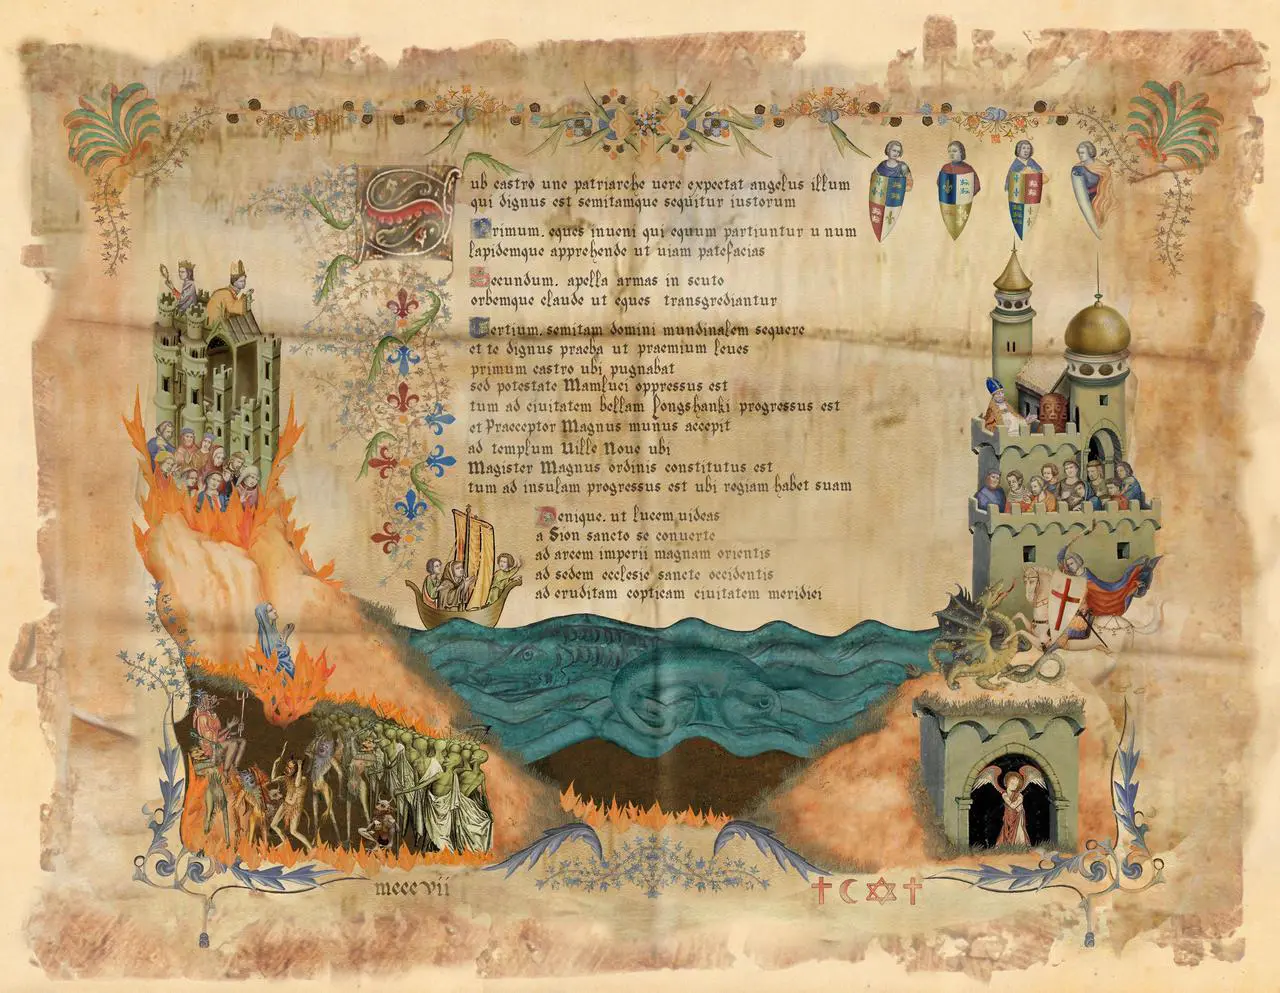 Sub castro une patriarche uere expectat angelus illum
qui dignus est semitamque sequitur iustorum
Primum. eques inueni qui equum partiuntur unum
lapidemque apprehende ut uiam patefacias
Secundum. apella armas in scuto
orbemque claude ut eques transgrediantur
Tertium. semitam domini mundinalem sequere
et te dignus praeba ut praemium leues
primum castro ubi pugnabat
sed potestate Mamluci oppressus est
tum ad ciuitatem bellam Longshanki progressus est
et Praeceptor Magnus munus accepit
ad templum Uille Noue ubi
Magister Magnus ordinis constitutus est
tum ad insulam progressus est ubi regiam habet suam
Denique. ut lucem uideas
a Sion sancto se conuerte
ad arcem imperii magnam orientis
ad sedem ecclesie sancte occidentis
ad eruditam copticam ciuitatem meridiei
mcccvii